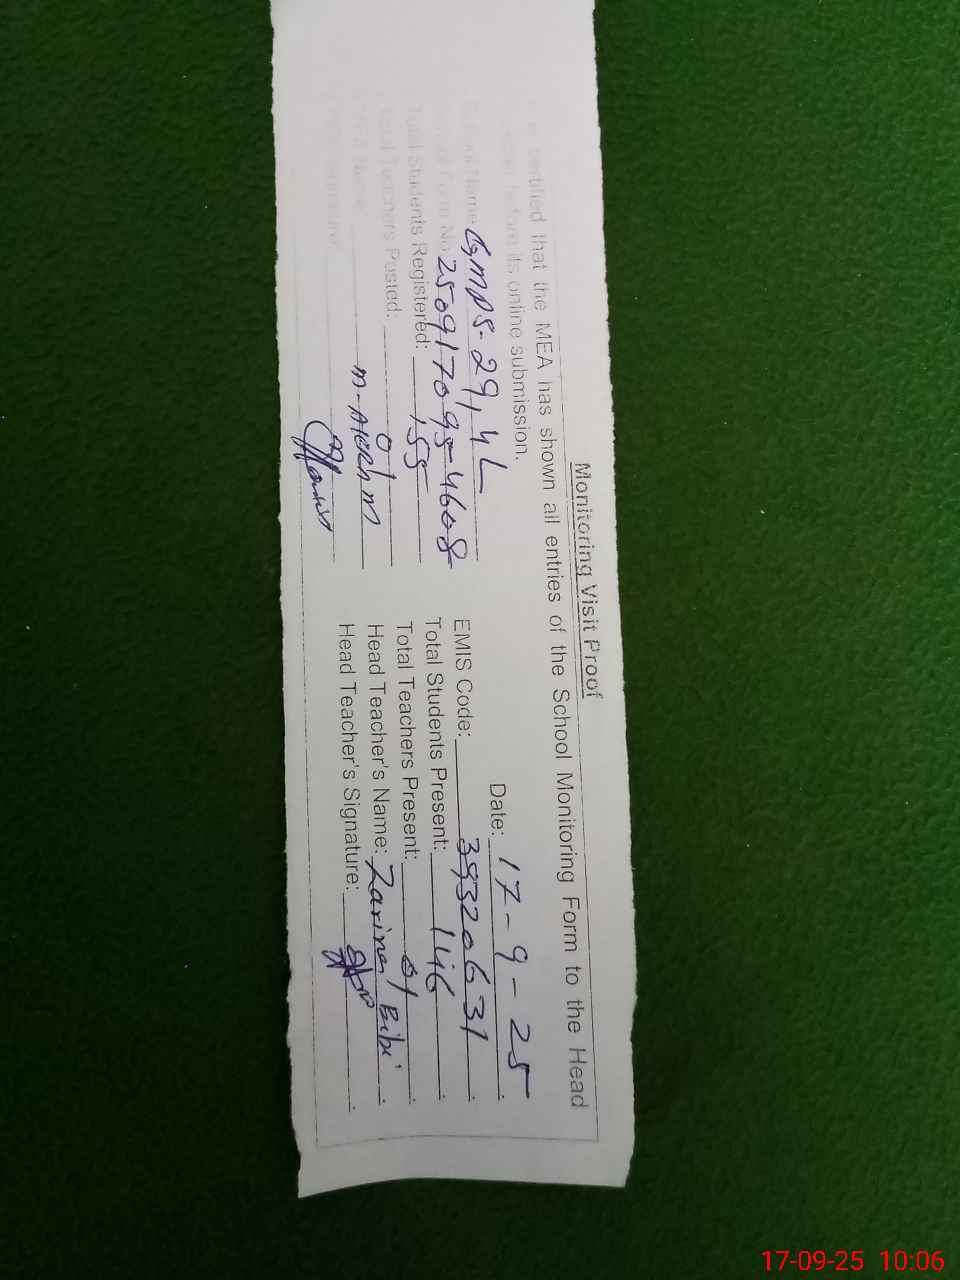 Monitoring Visit Proof
certified that the MEA has shown all entries of the School Monitoring Form to the Head
before its online submission.
Date: 17-9-25
School Name GMPS-29,4L EMIS Code: 39320631
Form No 250917095-4608 Total Students Present: 146
Total Students Registered: 155 Total Teachers Present: 01
Total Teachers Posted: 01 Head Teacher's Name: Zarina Bibi
Name Head Teacher's Signature:
17-09-25 10:06